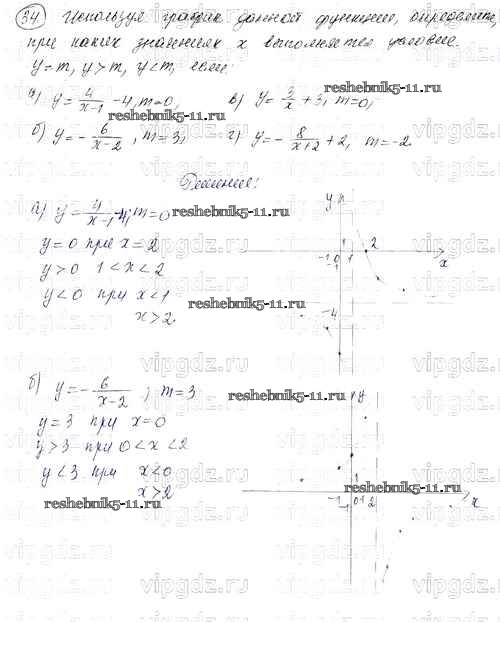 34 Используя график данной функции, определите,
при каких значениях x выполняется условие
y=m, y>m, y<m, если:
а) y = 4/(x-1) - 4, m=0,   в) y = 3/x + 3, m=0,
reshebnik5-11.ru
б) y = - 6/(x-2), m=3,   г) y = - 8/(x+2) + 2, m=-2.
Решение:
а) y = 4/(x-1) - 4, m=0
reshebnik5-11.ru
y=0 при x=2
y>0 1<x<2
y<0 при x<1
x>2
reshebnik5-11.ru
y
1
-1 0 1 2
-1
x
-4
б) y = - 6/(x-2), m=3
reshebnik5-11.ru
y=3 при x=0
y>3 при 0<x<2
y<3 при x<0
x>2
reshebnik5-11.ru
y
reshebnik5-11.ru
-1 0 1 2
x
vipgdz.ru